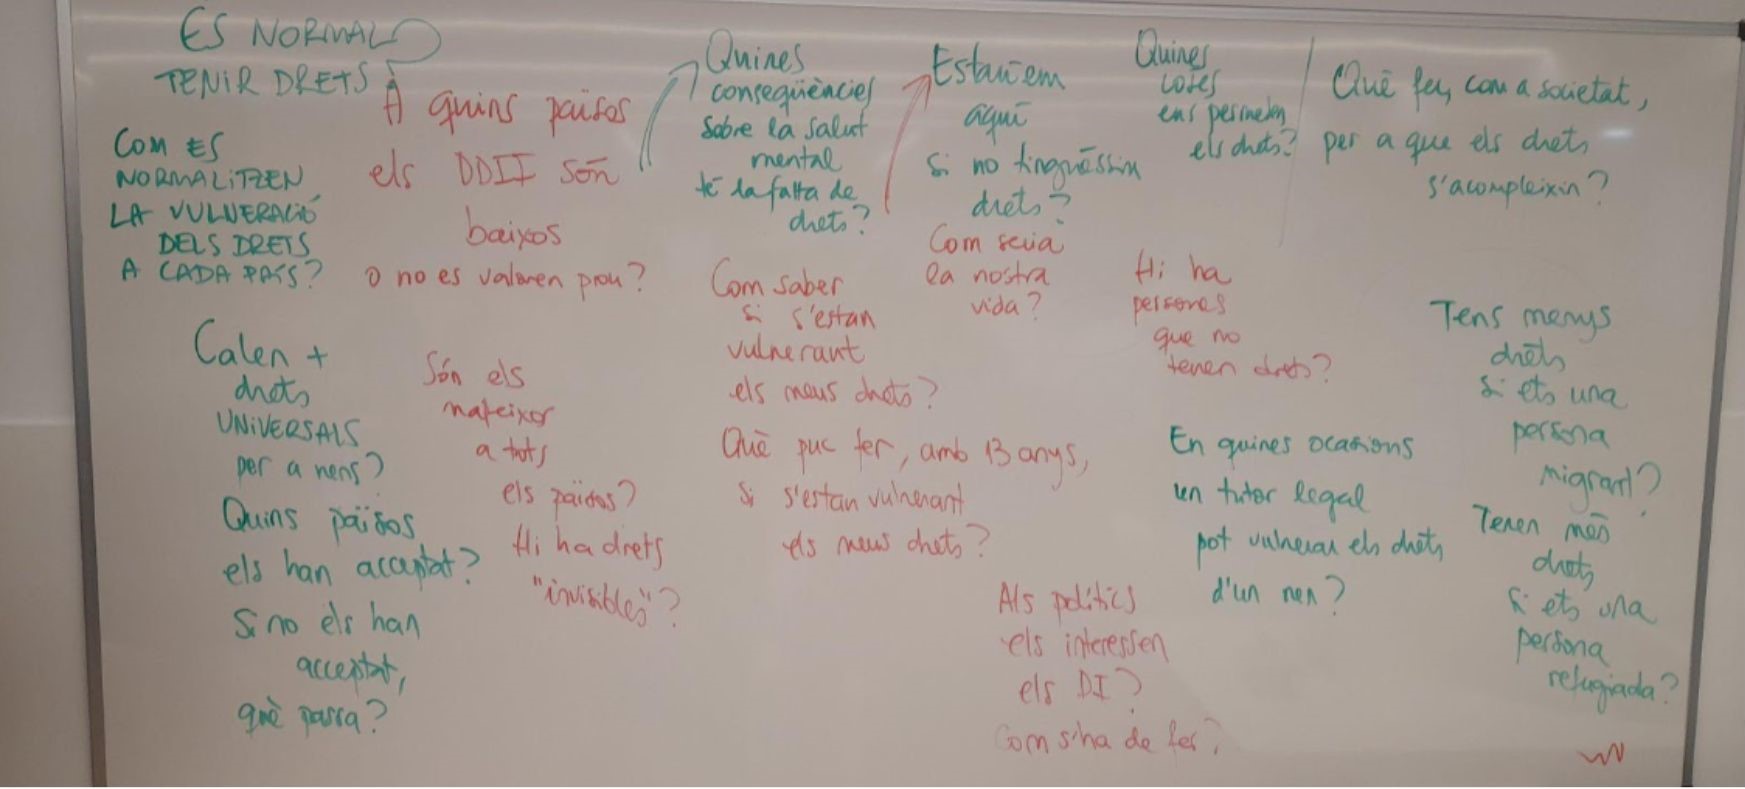 ES NORMAL
TENIR DRETS?
COM ES
NORMALITZEN
LA VULNERACIÓ
DELS DRETS
A CADA PAÍS?
A quins països
els DDII són
baixos
o no es valoren prou?
Quines
conseqüències
sobre la salut
mental
té la falta de
drets?
Estaríem
aquí
si no tinguéssim
drets?
Com seria
la nostra
vida?
Quines
coses
ens permeten
els drets?
Què fer, com a societat,
per a que els drets
s'acompleixin?
Calen +
drets
UNIVERSALS
per a nens?
Quins països
els han acceptat?
Si no els han
acceptat,
què passa?
Són els
mateixos
a tots
els països?
Hi ha drets
"invisibles"?
Com saber
si s'estan
vulnerant
els meus drets?
Què puc fer, amb 13 anys,
si s'estan vulnerant
els meus drets?
Hi ha
persones
que no
tenen drets?
En quines ocasions
un tutor legal
pot vulnerar els drets
d'un nen?
Als polítics
els interessen
els DI?
Com s'ha de fer?
Tens menys
drets
si ets una
persona
migrant?
Tenen més
drets
si ets una
persona
refugiada?